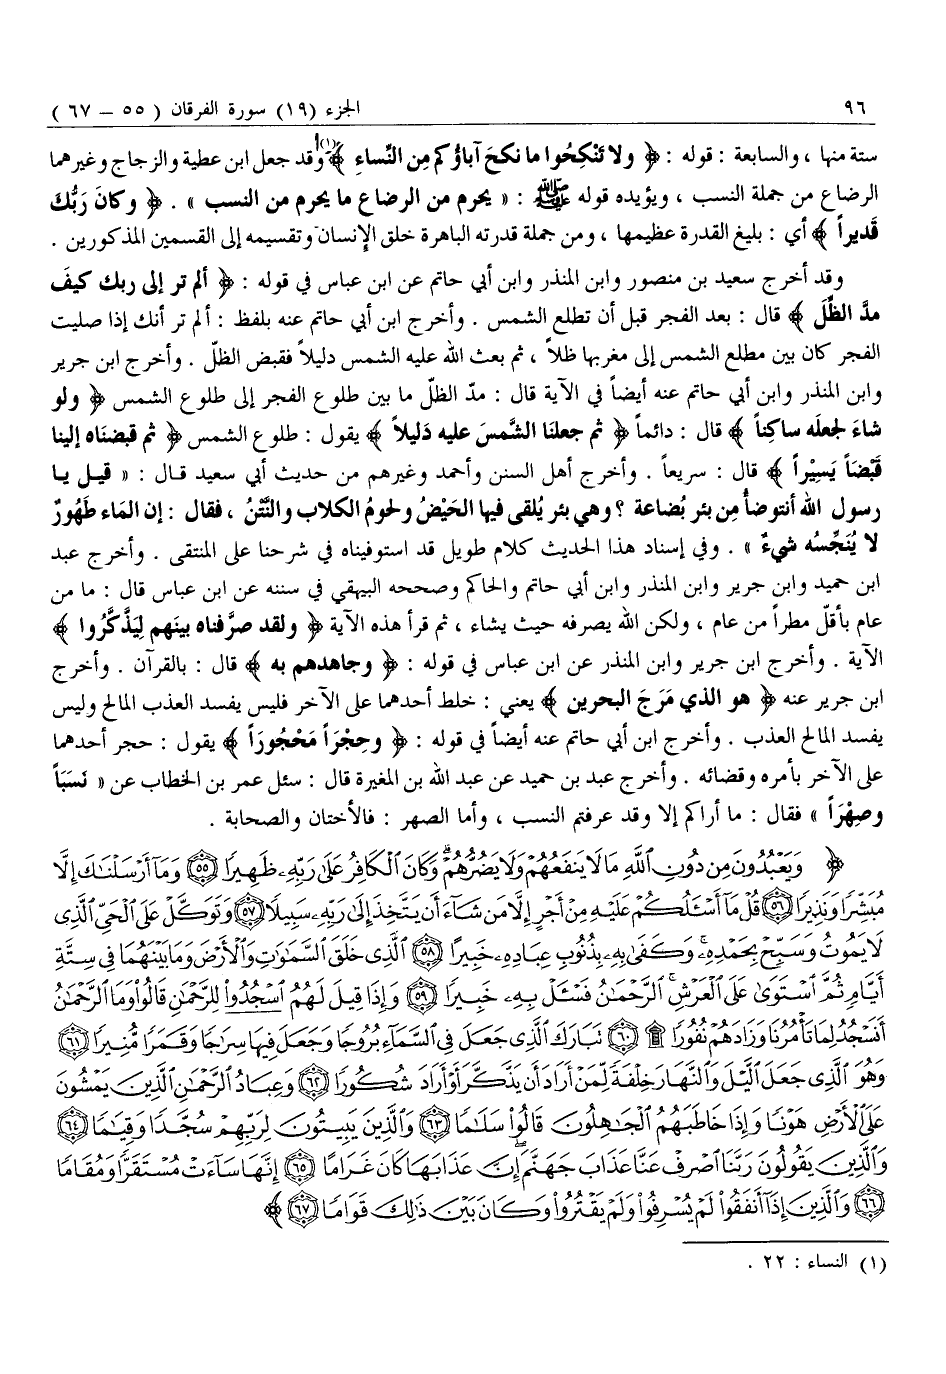 ٩٦ الجزء (١٩) سورة الفرقان ( ٥٥ – ٦٧ )
ستة منها ، والسابعة : قوله : ﴿ ولا تَنْكِحُوا ما نكحَ آباؤُكم مِن النِّساءِ ﴾(١) وقد جعل ابن عطية والزجاج وغيرهما
الرضاع من جملة النسب ، ويؤيده قوله ﷺ : « يحرم من الرضاع ما يحرم من النسب » . ﴿ وكانَ رَبُّكَ
قَديراً ﴾ أي : بليغ القدرة عظيمها ، ومن جملة قدرته الباهرة خلق الإنسان وتقسيمه إلى القسمين المذكورين .
وقد أخرج سعيد بن منصور وابن المنذر وابن أبي حاتم عن ابن عباس في قوله : ﴿ ألم تر إلى ربك كيفَ
مدَّ الظِّلَ ﴾ قال : بعد الفجر قبل أن تطلع الشمس . وأخرج ابن أبي حاتم عنه بلفظ : ألم تر أنك إذا صليت
الفجر كان بين مطلع الشمس إلى مغربها ظلاً ، ثم بعث الله عليه الشمس دليلاً فقبض الظلّ . وأخرج ابن جرير
وابن المنذر وابن أبي حاتم عنه أيضاً في الآية قال : مدّ الظلّ ما بين طلوع الفجر إلى طلوع الشمس ﴿ ولو
شاءَ لجعلَه ساكِناً ﴾ قال : دائماً ﴿ ثم جعلنَا الشَّمسَ عليه دَليلاً ﴾ يقول : طلوع الشمس ﴿ ثم قبضنَاه إلينا
قَبْضَاً يَسِيْراً ﴾ قال : سريعاً . وأخرج أهل السنن وأحمد وغيرهم من حديث أبي سعيد قـال : « قيـل يـا
رسول الله أنتوضأُ مِن بئر بُضاعة ؟ وهي بئر يُلقى فيها الحَيْضُ ولحومُ الكلاب والنَّتْنُ ، فقال : إن الماء طَهُورٌ
لا يُنَجِّسُه شيءٌ » . وفي إسناد هذا الحديث كلام طويل قد استوفيناه في شرحنا على المنتقى . وأخرج عبد
ابن حميد وابن جرير وابن المنذر وابن أبي حاتم والحاكم وصححه البيهقي في سننه عن ابن عباس قال : ما من
عام بأقلّ مطراً من عام ، ولكن الله يصرفه حيث يشاء ، ثم قرأ هذه الآية ﴿ ولقد صرَّفناه بينَهم لِيَذَّكَّرُوا ﴾
الآية . وأخرج ابن جرير وابن المنذر عن ابن عباس في قوله : ﴿ وجاهدهم به ﴾ قال : بالقرآن . وأخرج
ابن جرير عنه ﴿ هو الذي مَرَجَ البحرين ﴾ يعني : خلط أحدهما على الآخر فليس يفسد العذب المالح وليس
يفسد المالح العذب . وأخرج ابن أبي حاتم عنه أيضاً في قوله : ﴿ وحِجْرَاً مَحْجُورَاً ﴾ يقول : حجر أحدهما
على الآخر بأمره وقضائه . وأخرج عبد بن حميد عن عبد الله بن المغيرة قال : سئل عمر بن الخطاب عن « نَسَبَاً
وصِهْرَاً » فقال : ما أراكم إلا وقد عرفتم النسب ، وأما الصهر : فالأختان والصحابة .
﴿ وَيَعْبُدُونَ مِن دُونِ ٱللَّهِ مَا لَا يَنفَعُهُمْ وَلَا يَضُرُّهُمْ ۗ وَكَانَ ٱلْكَافِرُ عَلَىٰ رَبِّهِۦ ظَهِيرًا ﴿٥٥﴾ وَمَآ أَرْسَلْنَاكَ إِلَّا
مُبَشِّرًا وَنَذِيرًا ﴿٥٦﴾ قُلْ مَآ أَسْـَٔلُكُمْ عَلَيْهِ مِنْ أَجْرٍ إِلَّا مَن شَآءَ أَن يَتَّخِذَ إِلَىٰ رَبِّهِۦ سَبِيلًا ﴿٥٧﴾ وَتَوَكَّلْ عَلَى ٱلْحَيِّ ٱلَّذِى
لَا يَمُوتُ وَسَبِّحْ بِحَمْدِهِۦ ۚ وَكَفَىٰ بِهِۦ بِذُنُوبِ عِبَادِهِۦ خَبِيرًا ﴿٥٨﴾ ٱلَّذِى خَلَقَ ٱلسَّمَٰوَٰتِ وَٱلْأَرْضَ وَمَا بَيْنَهُمَا فِى سِتَّةِ
أَيَّامٍ ثُمَّ ٱسْتَوَىٰ عَلَى ٱلْعَرْشِ ۚ ٱلرَّحْمَٰنُ فَسْـَٔلْ بِهِۦ خَبِيرًا ﴿٥٩﴾ وَإِذَا قِيلَ لَهُمُ ٱسْجُدُوا۟ لِلرَّحْمَٰنِ قَالُوا۟ وَمَا ٱلرَّحْمَٰنُ
أَنَسْجُدُ لِمَا تَأْمُرُنَا وَزَادَهُمْ نُفُورًا ۩ ﴿٦٠﴾ تَبَارَكَ ٱلَّذِى جَعَلَ فِى ٱلسَّمَآءِ بُرُوجًا وَجَعَلَ فِيهَا سِرَٰجًا وَقَمَرًا مُّنِيرًا ﴿٦١﴾
وَهُوَ ٱلَّذِى جَعَلَ ٱلَّيْلَ وَٱلنَّهَارَ خِلْفَةً لِّمَنْ أَرَادَ أَن يَذَّكَّرَ أَوْ أَرَادَ شُكُورًا ﴿٦٢﴾ وَعِبَادُ ٱلرَّحْمَٰنِ ٱلَّذِينَ يَمْشُونَ
عَلَى ٱلْأَرْضِ هَوْنًا وَإِذَا خَاطَبَهُمُ ٱلْجَٰهِلُونَ قَالُوا۟ سَلَٰمًا ﴿٦٣﴾ وَٱلَّذِينَ يَبِيتُونَ لِرَبِّهِمْ سُجَّدًا وَقِيَٰمًا ﴿٦٤﴾
وَٱلَّذِينَ يَقُولُونَ رَبَّنَا ٱصْرِفْ عَنَّا عَذَابَ جَهَنَّمَ ۖ إِنَّ عَذَابَهَا كَانَ غَرَامًا ﴿٦٥﴾ إِنَّهَا سَآءَتْ مُسْتَقَرًّا وَمُقَامًا
﴿٦٦﴾ وَٱلَّذِينَ إِذَآ أَنفَقُوا۟ لَمْ يُسْرِفُوا۟ وَلَمْ يَقْتُرُوا۟ وَكَانَ بَيْنَ ذَٰلِكَ قَوَامًا ﴿٦٧﴾ ﴾
(١) النساء : ٢٢ .